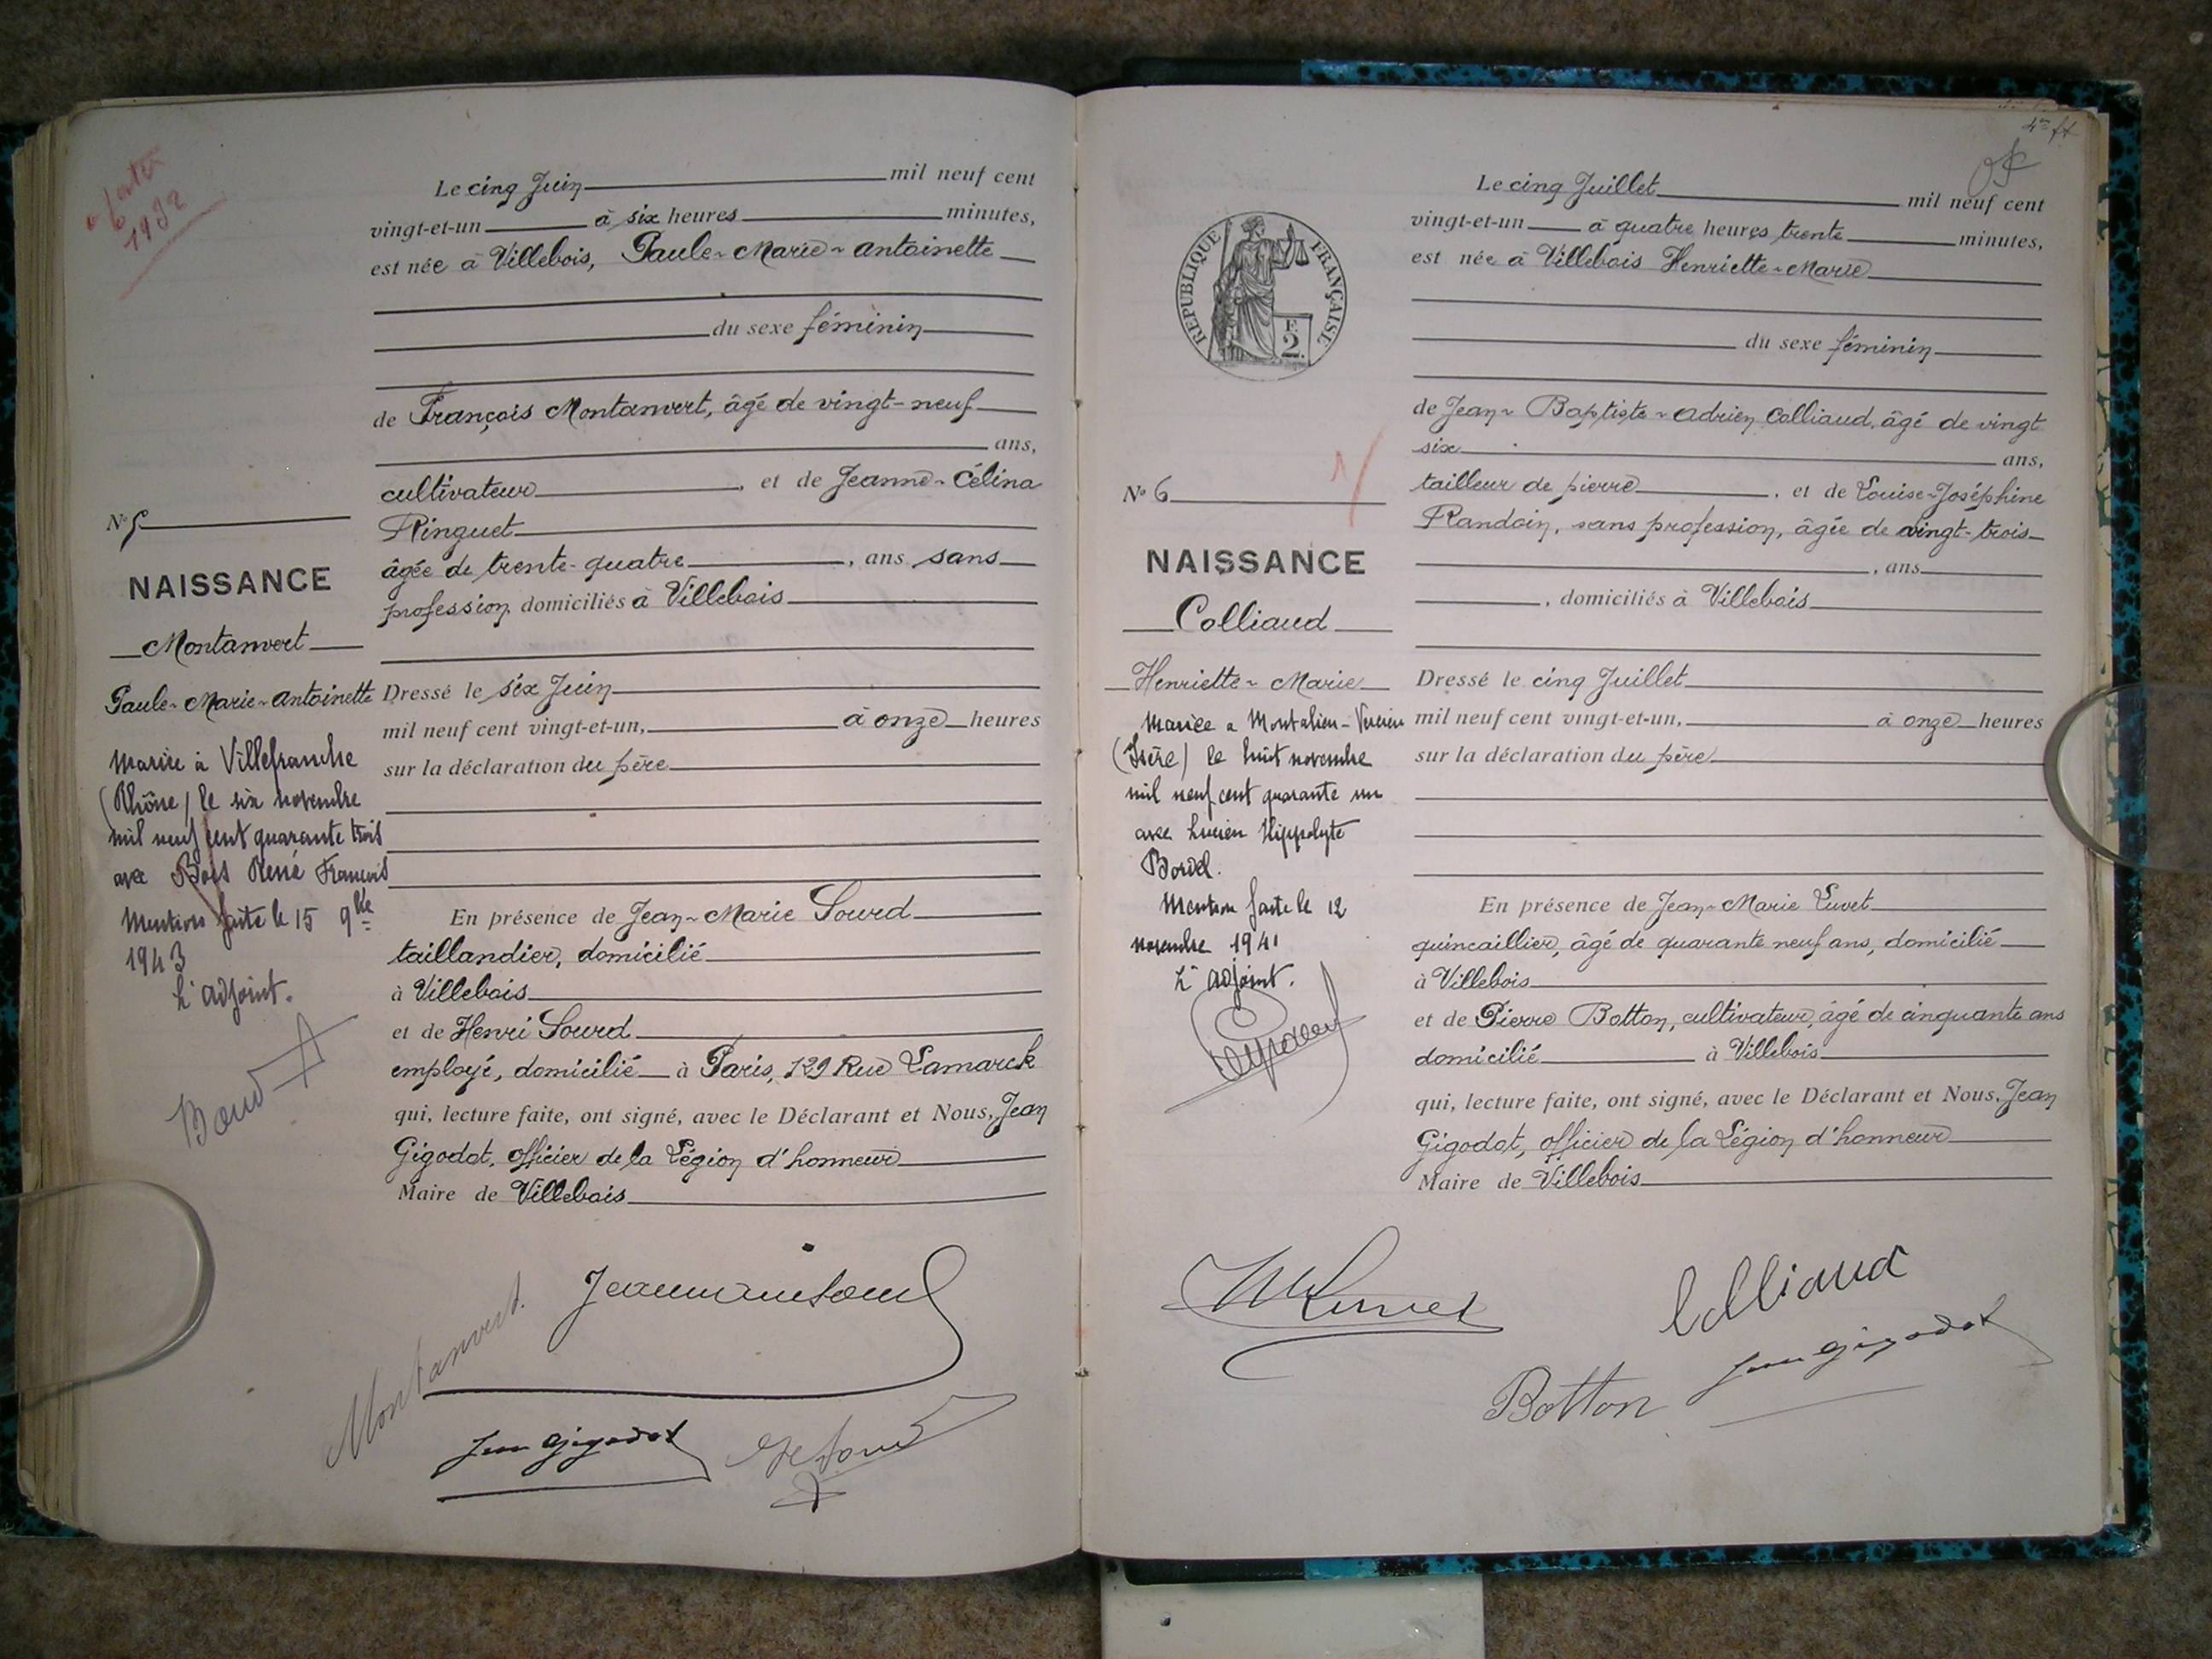 1932
Le cinq Juin mil neuf cent
vingt-et-un à six heures minutes,
est née à Villebois, Paule-Marie-Antoinette
du sexe féminin
de François Montanvert, âgé de vingt-neuf
ans,
cultivateur, et de Jeanne-Célina
Ringuet
âgée de trente-quatre, ans sans
profession, domiciliés à Villebois
Dressé le six Juin
mil neuf cent vingt-et-un, à onze heures
sur la déclaration du père
En présence de Jean-Marie Sourd
taillandier, domicilié
à Villebois
et de Henri Sourd
employé, domicilié à Paris, 129 Rue Lamarck
qui, lecture faite, ont signé, avec le Déclarant et Nous, Jean
Gigodot, officier de la Légion d'honneur
Maire de Villebois
No 5
NAISSANCE
Montanvert
Paule-Marie-Antoinette
Mariée à Villefranche
(Rhône) le six novembre
mil neuf cent quarante trois
avec Bois René François
Mention faite le 15 9bre
1943
L'adjoint.
Montanvert.
Jean Gigodot
4me ft
RÉPUBLIQUE FRANÇAISE
F.
2.
Le cinq Juillet mil neuf cent
vingt-et-un à quatre heures trente minutes,
est née à Villebois Henriette-Marie
du sexe féminin
de Jean-Baptiste-Adrien Colliaud, âgé de vingt
six ans,
tailleur de pierre, et de Louise-Joséphine
Randoin, sans profession, âgée de vingt-trois
, ans
, domiciliés à Villebois
Dressé le cinq Juillet
mil neuf cent vingt-et-un, à onze heures
sur la déclaration du père
En présence de Jean-Marie Luvet
quincaillier, âgé de quarante neuf ans, domicilié
à Villebois
et de Pierre Botton, cultivateur, âgé de cinquante ans
domicilié à Villebois
qui, lecture faite, ont signé, avec le Déclarant et Nous, Jean
Gigodot, officier de la Légion d'honneur
Maire de Villebois
No 6
NAISSANCE
Colliaud
Henriette-Marie
Mariée a Montalieu-Vercieu
(Isère) le huit novembre
mil neuf cent quarante un
avec Lucien Hippolyte
Borel.
Mention faite le 12
novembre 1941
L'adjoint.
Colliaud
Jean Gigodot
Botton